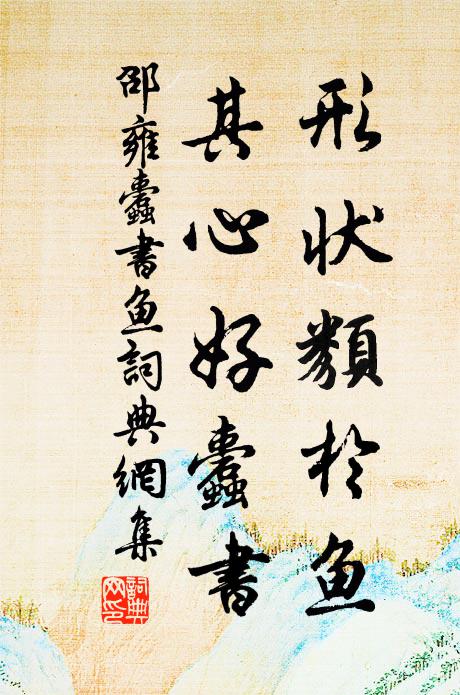 形状類於魚
其心好蠹書
邵雍蠹書魚詞典網集
詞典